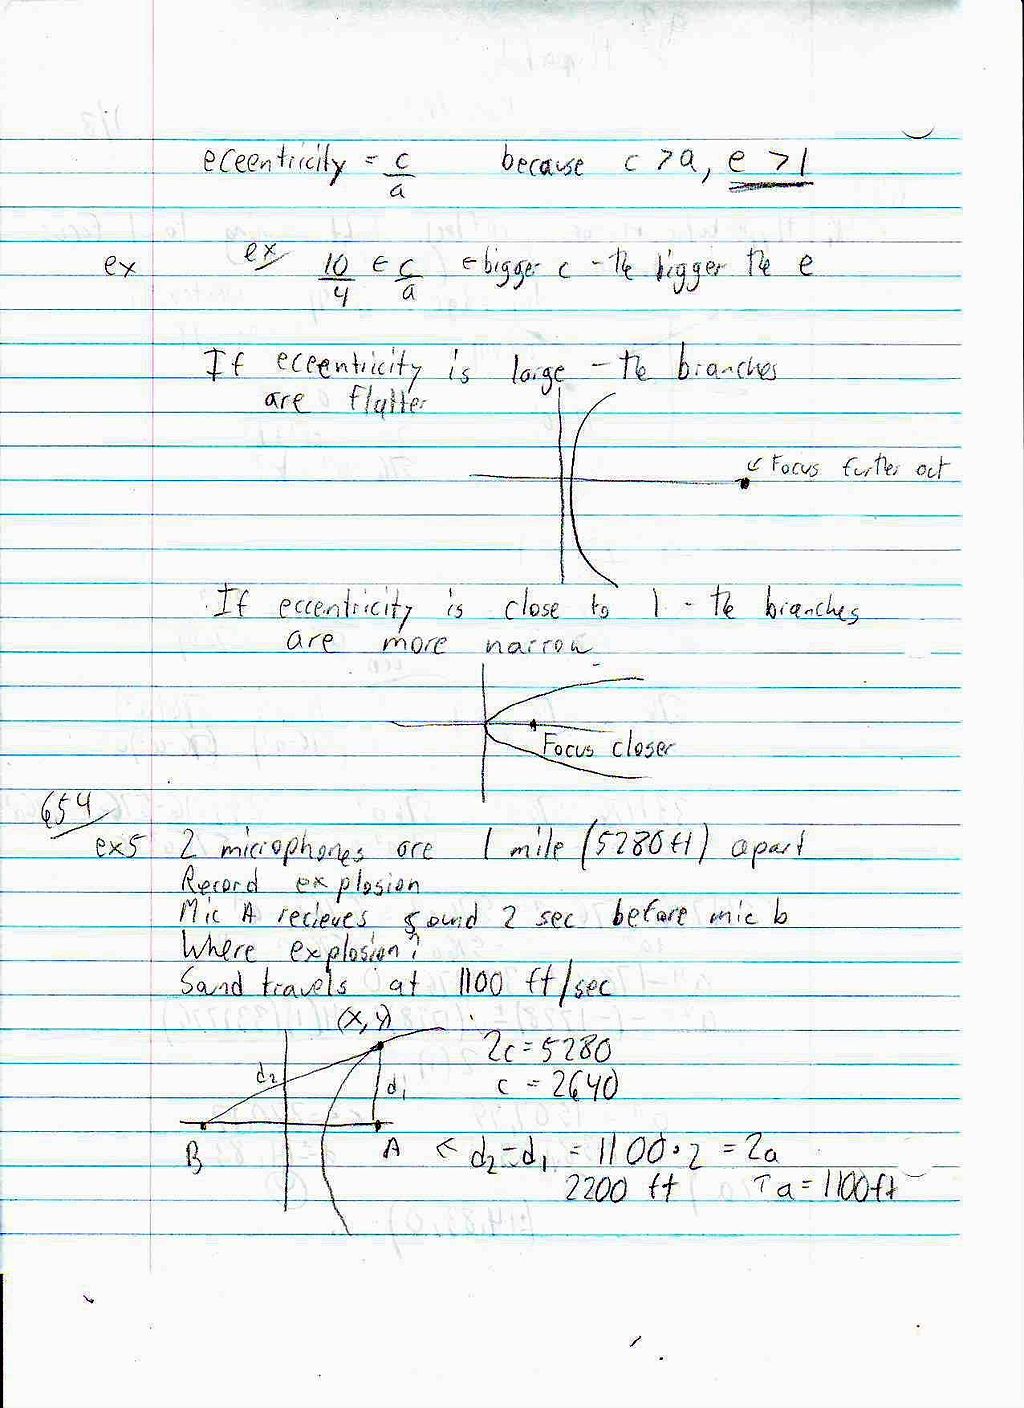 eceentricity = c/a because c > a, e > 1
ex ex 10/4 ∈ c/a ← bigger c - the bigger the e
If eceentricity is large - the branches
are flatter
↙ Focus further out
If eccentricity is close to 1 - the branches
are more narrow
Focus closer
654
ex5 2 microphones are 1 mile (5280 ft) apart
Record explosion
Mic A recieves sound 2 sec before mic b
Where explosion?
Sound travels at 1100 ft/sec
(x, y)
2c = 5280
d2
d1
c = 2640
B A ← d2 - d1 = 1100 · 2 = 2a
2200 ft ↑ a = 1100 ft